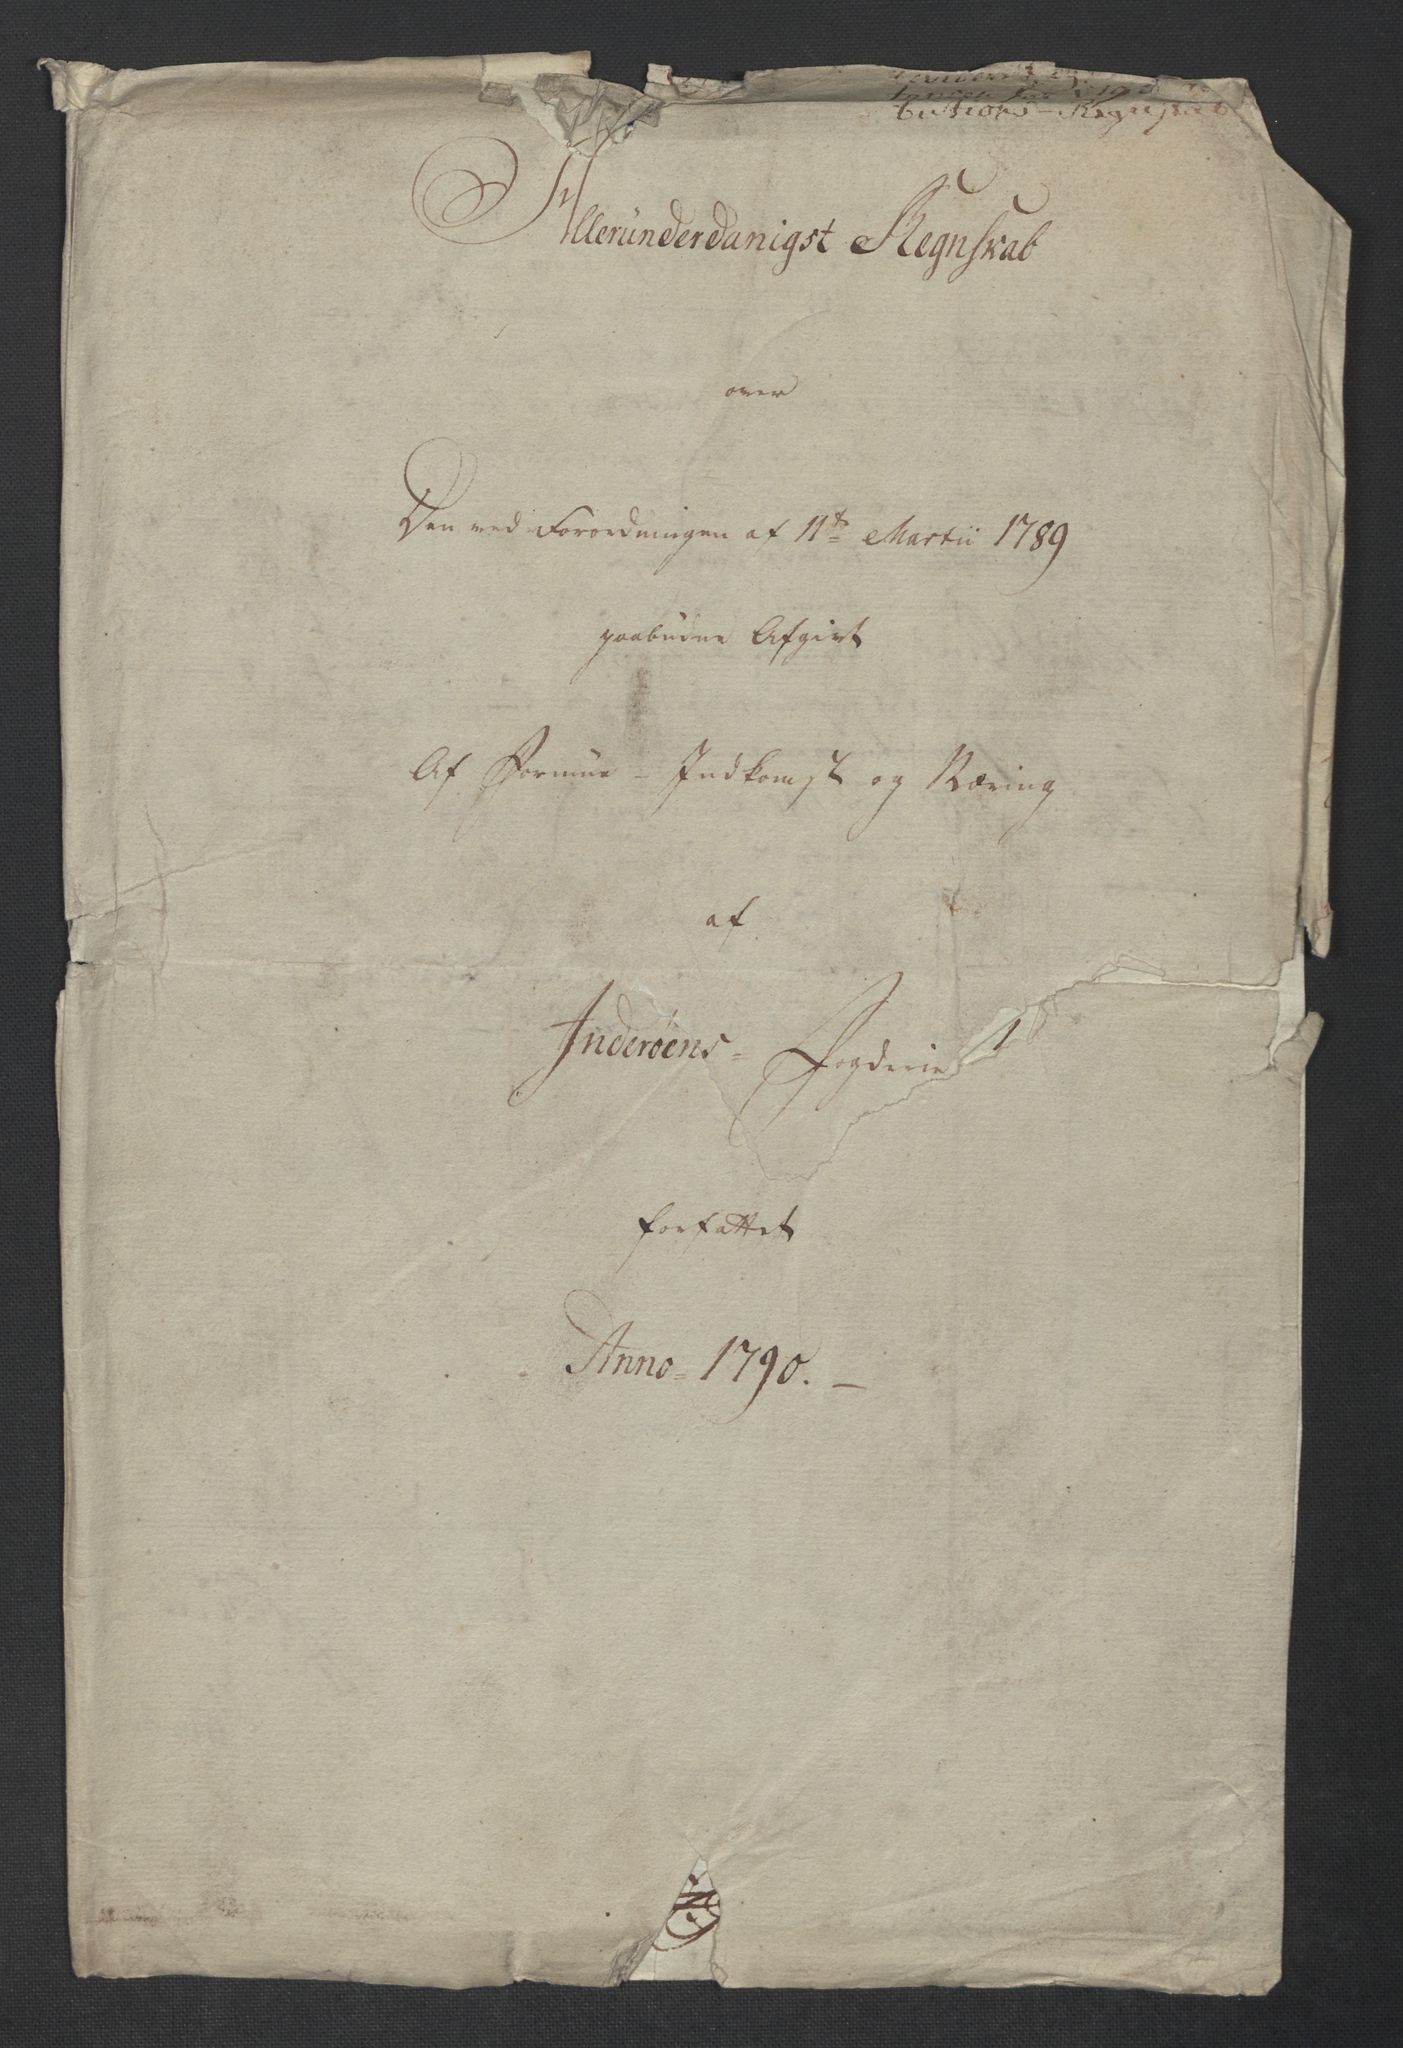 butions-Regnskab
Alleründerdanigst Regnskab
over
Den ved Forordningen af 11te Martii 1789
paabudne Afgivt
Af Formue - Indkomst og Næring
af
Inderöens = Fogderie
forfattet
Anno = 1790. —